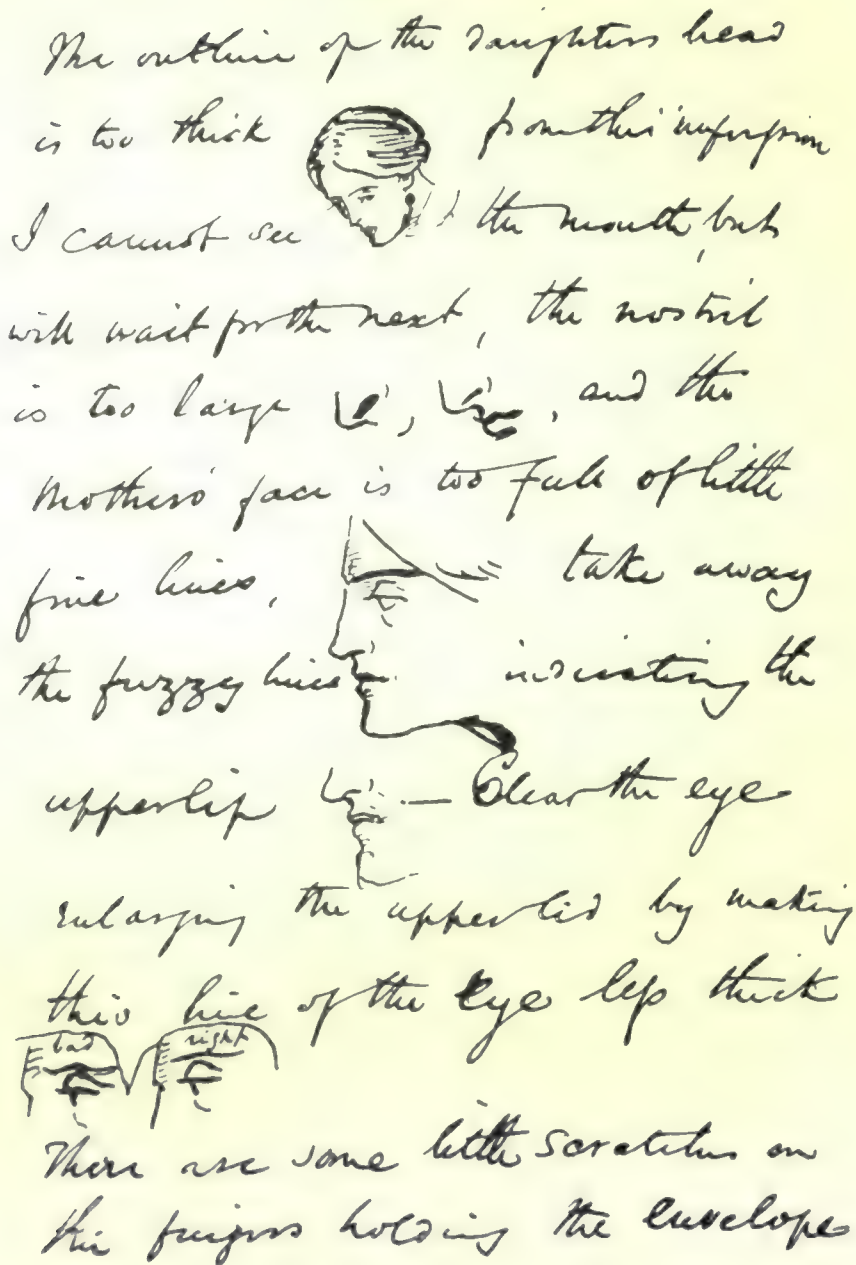 The outline of the daughters head
is too thick from this impression
I cannot see the mouth, but
will wait for the next, the nostril
is too large , , and the
Mothers' face is too full of little
fine lines, take away
the fuzzy lines indicating the
upper lip — Clear the eye
enlarging the upper lid by making
this line of the eye less thick
bad right
There are some little scratches on
the fingers holding the envelope